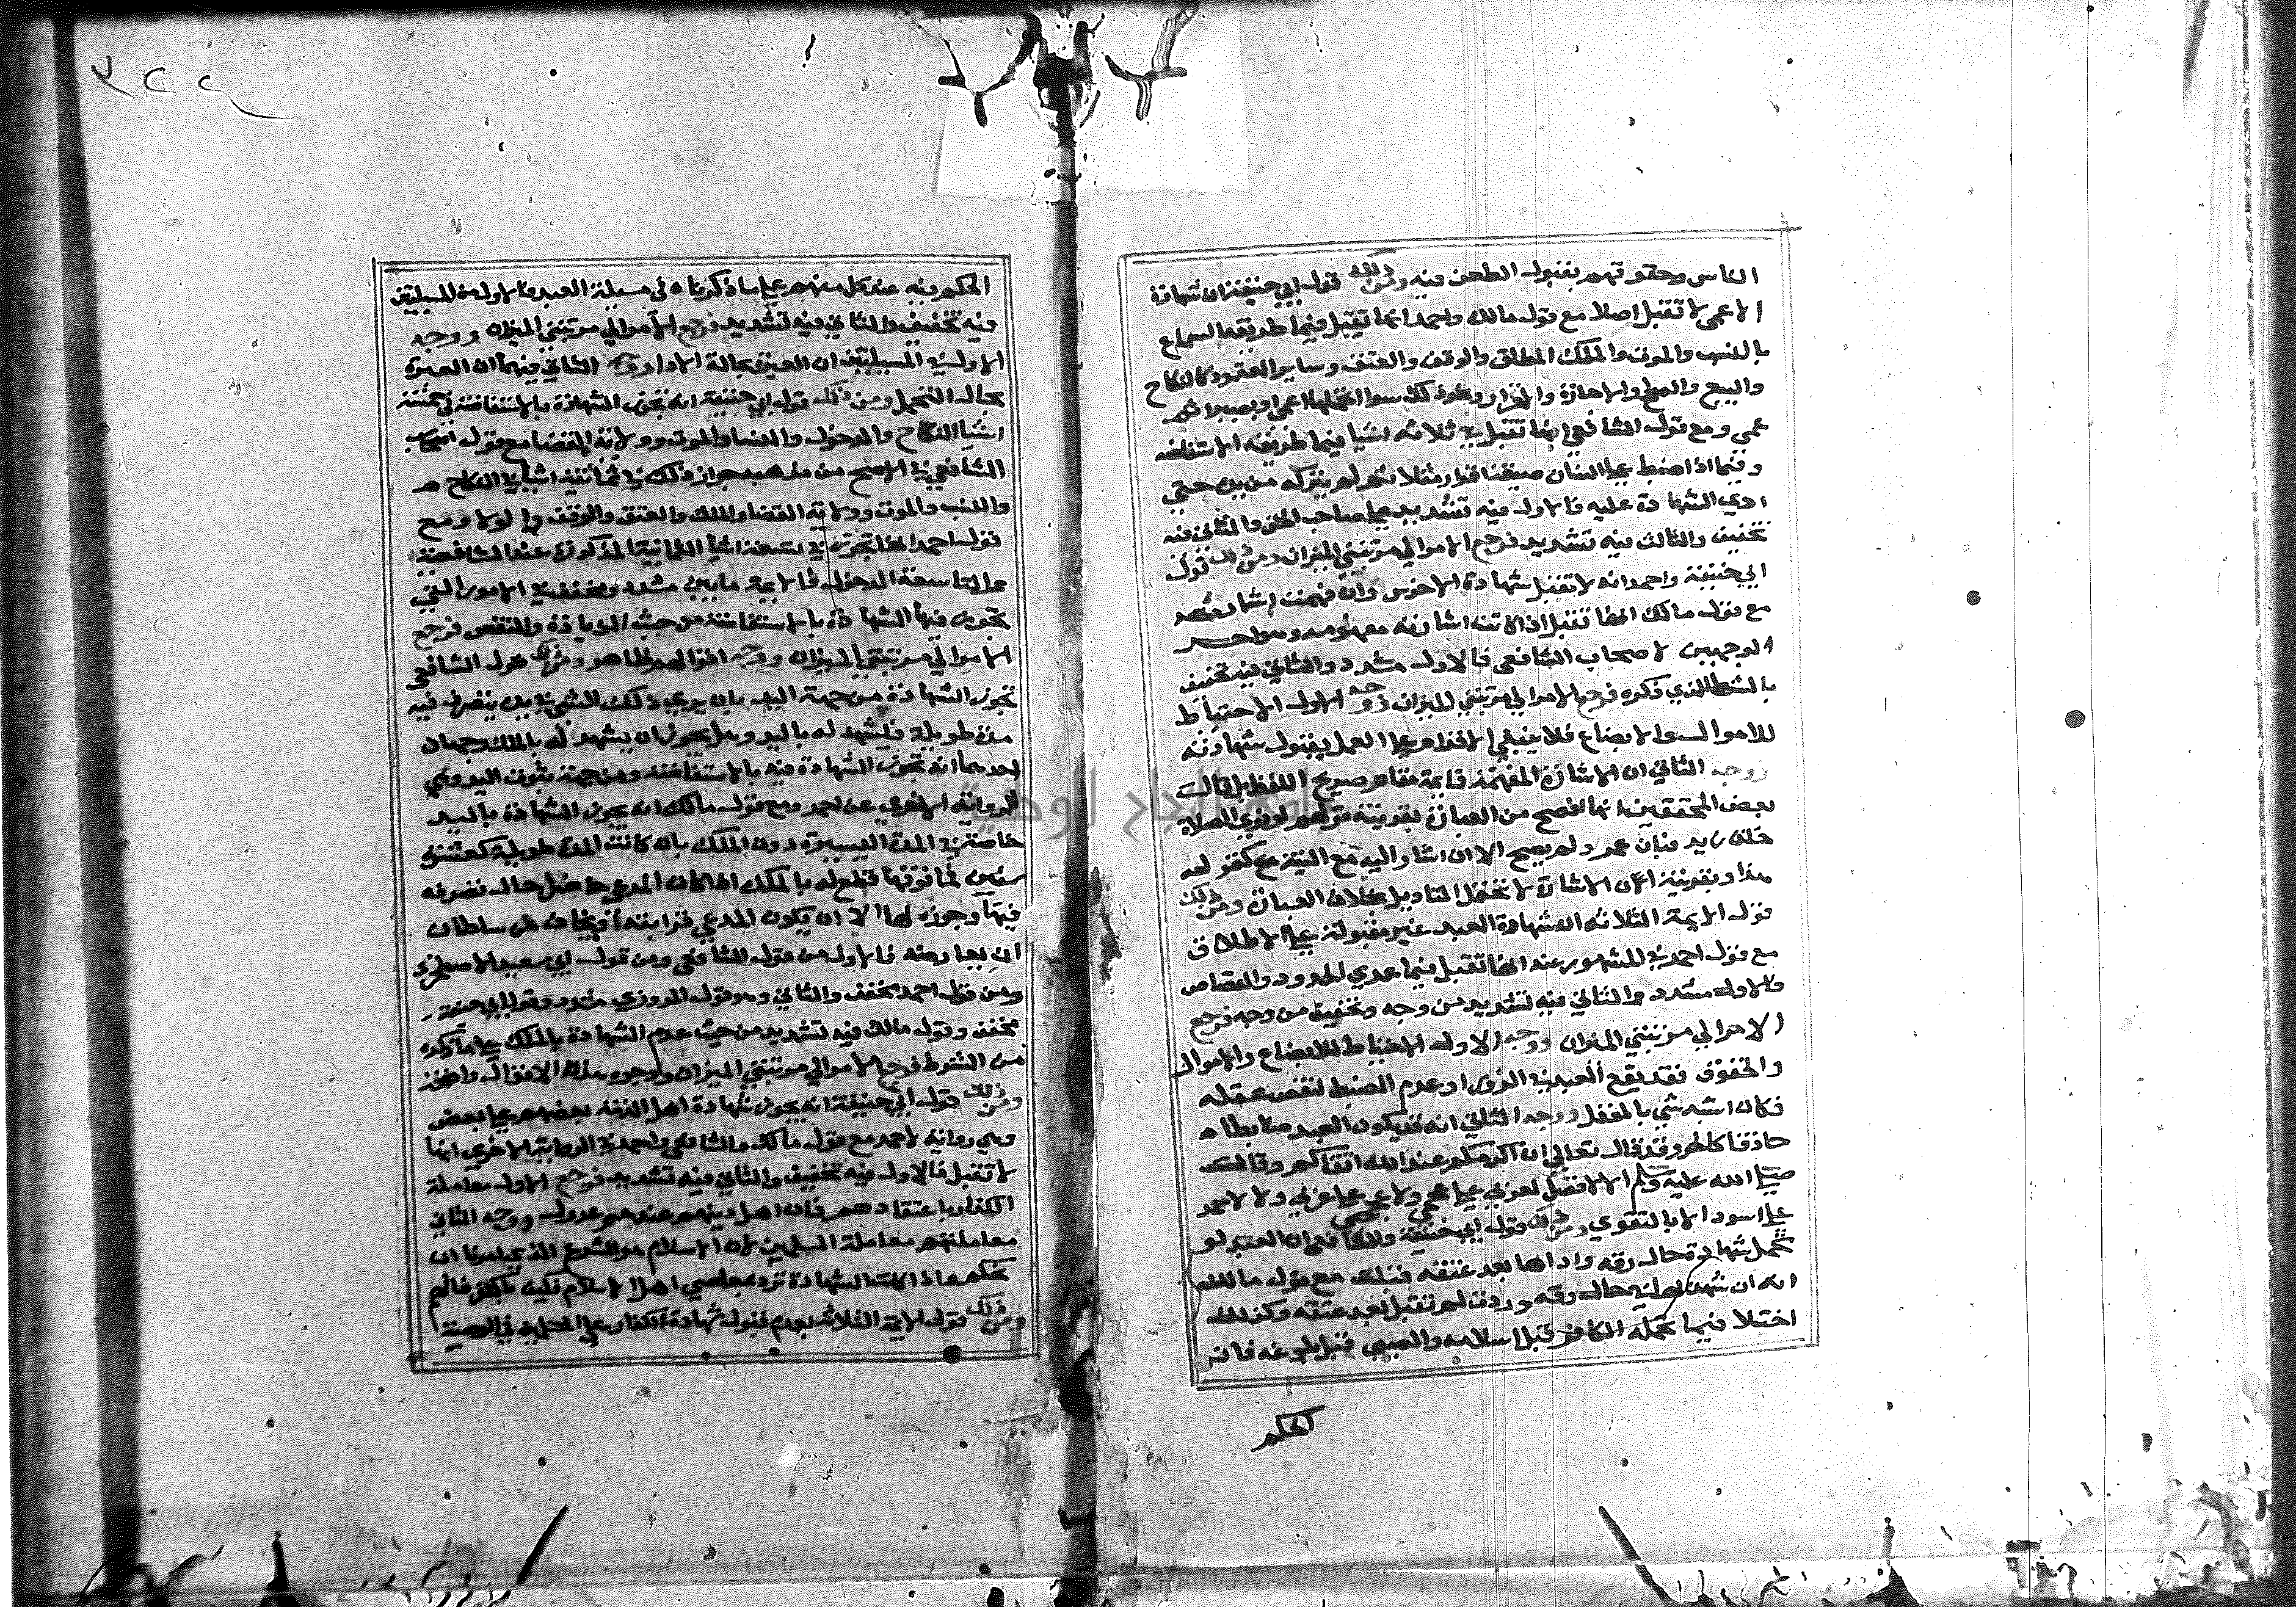 الناس وحقوقهم بقبول الطعن فيه ومن ذلك قول ابي حنيفة ان شهادة
الاعمى لا تقبل اصلا مع قول مالك واحمد انها تقبل فيما طريقه السماع
بالنسب والموت والملك المطلق والوقف والعتق وساير العقود كالنكاح
والبيع والصلح والاجارة والاقرار ونحو ذلك سوا تحملها اعمى او بصيرا ثم
عمي ومع قول الشافعي انها تقبل في ثلاثه اشيا فيما طريقه الاستفاضه
وفيما اذا ضبط على انسان اقرار مثلا ثم لم يتركه من يده حتى
ادي الشهادة عليه فالاول فيه تشديد على صاحب الحق والثاني فيه
تخفيف والثالث فيه تشديد فرجع الامر الي مرتبتي الميزان ومن ذلك قول
ابي حنيفة واحمد انه لا تقبل شهادة الاخرس وان فهمت اشارته
مع قول مالك انها تقبل اذا كانت اشارته مفهومه وهو احد
الوجهين لاصحاب الشافعي فالاول مشدد والثاني فيه تخفيف
بالشرط الذي ذكره فرجع الامر الي مرتبتي الميزان ووجه الاول الاحتياط
للاموال والابضاع فلا ينبغي الاقدام على العمل بقبول شهادته
ووجه الثاني ان الاشارة المفهمة قايمة مقام صريح اللفظ بل قالت
بعض المحققين انها افصح من العبارة بقرينة قولهم لو نوي الصلاة
خلف زيد فبان عمرو لم يصح الا ان اشار اليه مع النية كقوله
هذا وبقرينة ان الاشارة لا تحتمل التاويل بخلاف العبارة ومن ذلك
قول الايمة الثلاثه ان شهادة العبد غير مقبولة على الاطلاق
مع قول احمد في المشهور عنه انها تقبل فيما عدي الحدود والقصاص
فالاول مشدد والثاني فيه تشديد من وجه وتخفيف من وجه فرجع
الامر الي مرتبتي الميزان ووجه الاول الاحتياط للابضاع والاموال
والحقوق فقد يقع العبد في الزور او عدم الضبط لنقص عقله
فكان اشبه شي بالمغفل ووجه الثاني انه قد يكون العبد ضابطا
حاذقا كالحر وقد قال تعالي ان اكرمكم عند الله اتقاكم وقال
صلى الله عليه وسلم الا لا فضل لعربي على عجمي ولا عجمي على عربي ولا لاحمر
على اسود الا بالتقوي ومن ذلك قول ابي حنيفة والشافعي ان العبد لو
تحمل شهادة حال رقه واداها بعد عتقه قبلت مع قول مالك
انه ان شهد به في حال رقه وردت لم تقبل بعد عتقه وكذلك
اختلا فيما تحمله الكافر قبل اسلامه والصبي قبل بلوغه فان
الحكم
الحكم فيه عند كل منهم على ما ذكرناه في مسيلة العبد فالاول من المسيلتين
فيه تخفيف والثاني فيه تشديد فرجع الامر الي مرتبتي الميزان ووجه
الاول في المسيلتين ان العبرة بحالة الادا ووجه الثاني فيهما ان العبرة
بحال التحمل ومن ذلك قول ابي حنيفة انه تجوز الشهادة بالاستفاضة في خمسة
اشيا النكاح والدخول والنسب والموت وولاية القضا مع قول اصحاب
الشافعي في الاصح من مذهبه جواز ذلك في ثمانية اشيا في النكاح
والنسب والموت وولاية القضا والملك والعتق والوقف والولا ومع
قول احمد انها تجوز في تسعة اشيا الثمانية المذكورة عند الشافعية
والتاسعة الدخول فالايمة ما بين مشدد ومخفف في الامور التي
تجوز فيها الشهادة بالاستفاضة من حيث الزيادة والنقص فرجع
الامر الي مرتبتي الميزان ووجه اقوالهم ظاهر ومن ذلك قول الشافعي
تجوز الشهادة من جهة اليد بان يري ذلك الشي في يده يتصرف فيه
مدة طويلة فيشهد له باليد وهل يجوز ان يشهد له بالملك وجهان
احدهما انه تجوز الشهادة فيه بالاستفاضة ومن جهة ثبوت اليد وهي
الرواية الاخري عن احمد ومع قول مالك انه تجوز الشهادة باليد
خاصة في المدة اليسيرة دون الملك بان كانت المدة طويلة كعشر
سنين فما فوقها قطع له بالملك اذا كان المدعي حاضرا حال تصرفه
فيها وحوزه لها الا ان يكون المدعي قرابته او يخاف من سلطان
ان يعارضه فالاول من قول الشافعي ومن قول ابي سعيد الاصطخري
ومن قول احمد مخفف والثاني وهو قول المروزي مشدد وقول ابي حنيفة
مخفف وقول مالك فيه تشديد من حيث عدم الشهادة بالملك على ما ذكره
من الشروط فرجع الامر الي مرتبتي الميزان ووجوه هذه الاقوال واضحة
ومن ذلك قول ابي حنيفة انه يجوز شهادة اهل الذمة بعضهم على بعض
وهي رواية لاحمد مع قول مالك والشافعي واحمد في الرواية الاخري انها
لا تقبل فالاول فيه تخفيف والثاني فيه تشديد فوجه الاول معاملة
الكفار باعتقادهم فان اهل دينهم عندهم عدول ووجه الثاني
معاملتهم معاملة المسلمين لان الاسلام هو الشرع الذي امرنا ان
نحكم به واذا كانت الشهادة ترد بمعاصي اهل الاسلام فكيف بالكفر فافهم
ومن ذلك قول الايمة الثلاثه بعدم قبول شهادة الكفار على المسلمين في الوصية